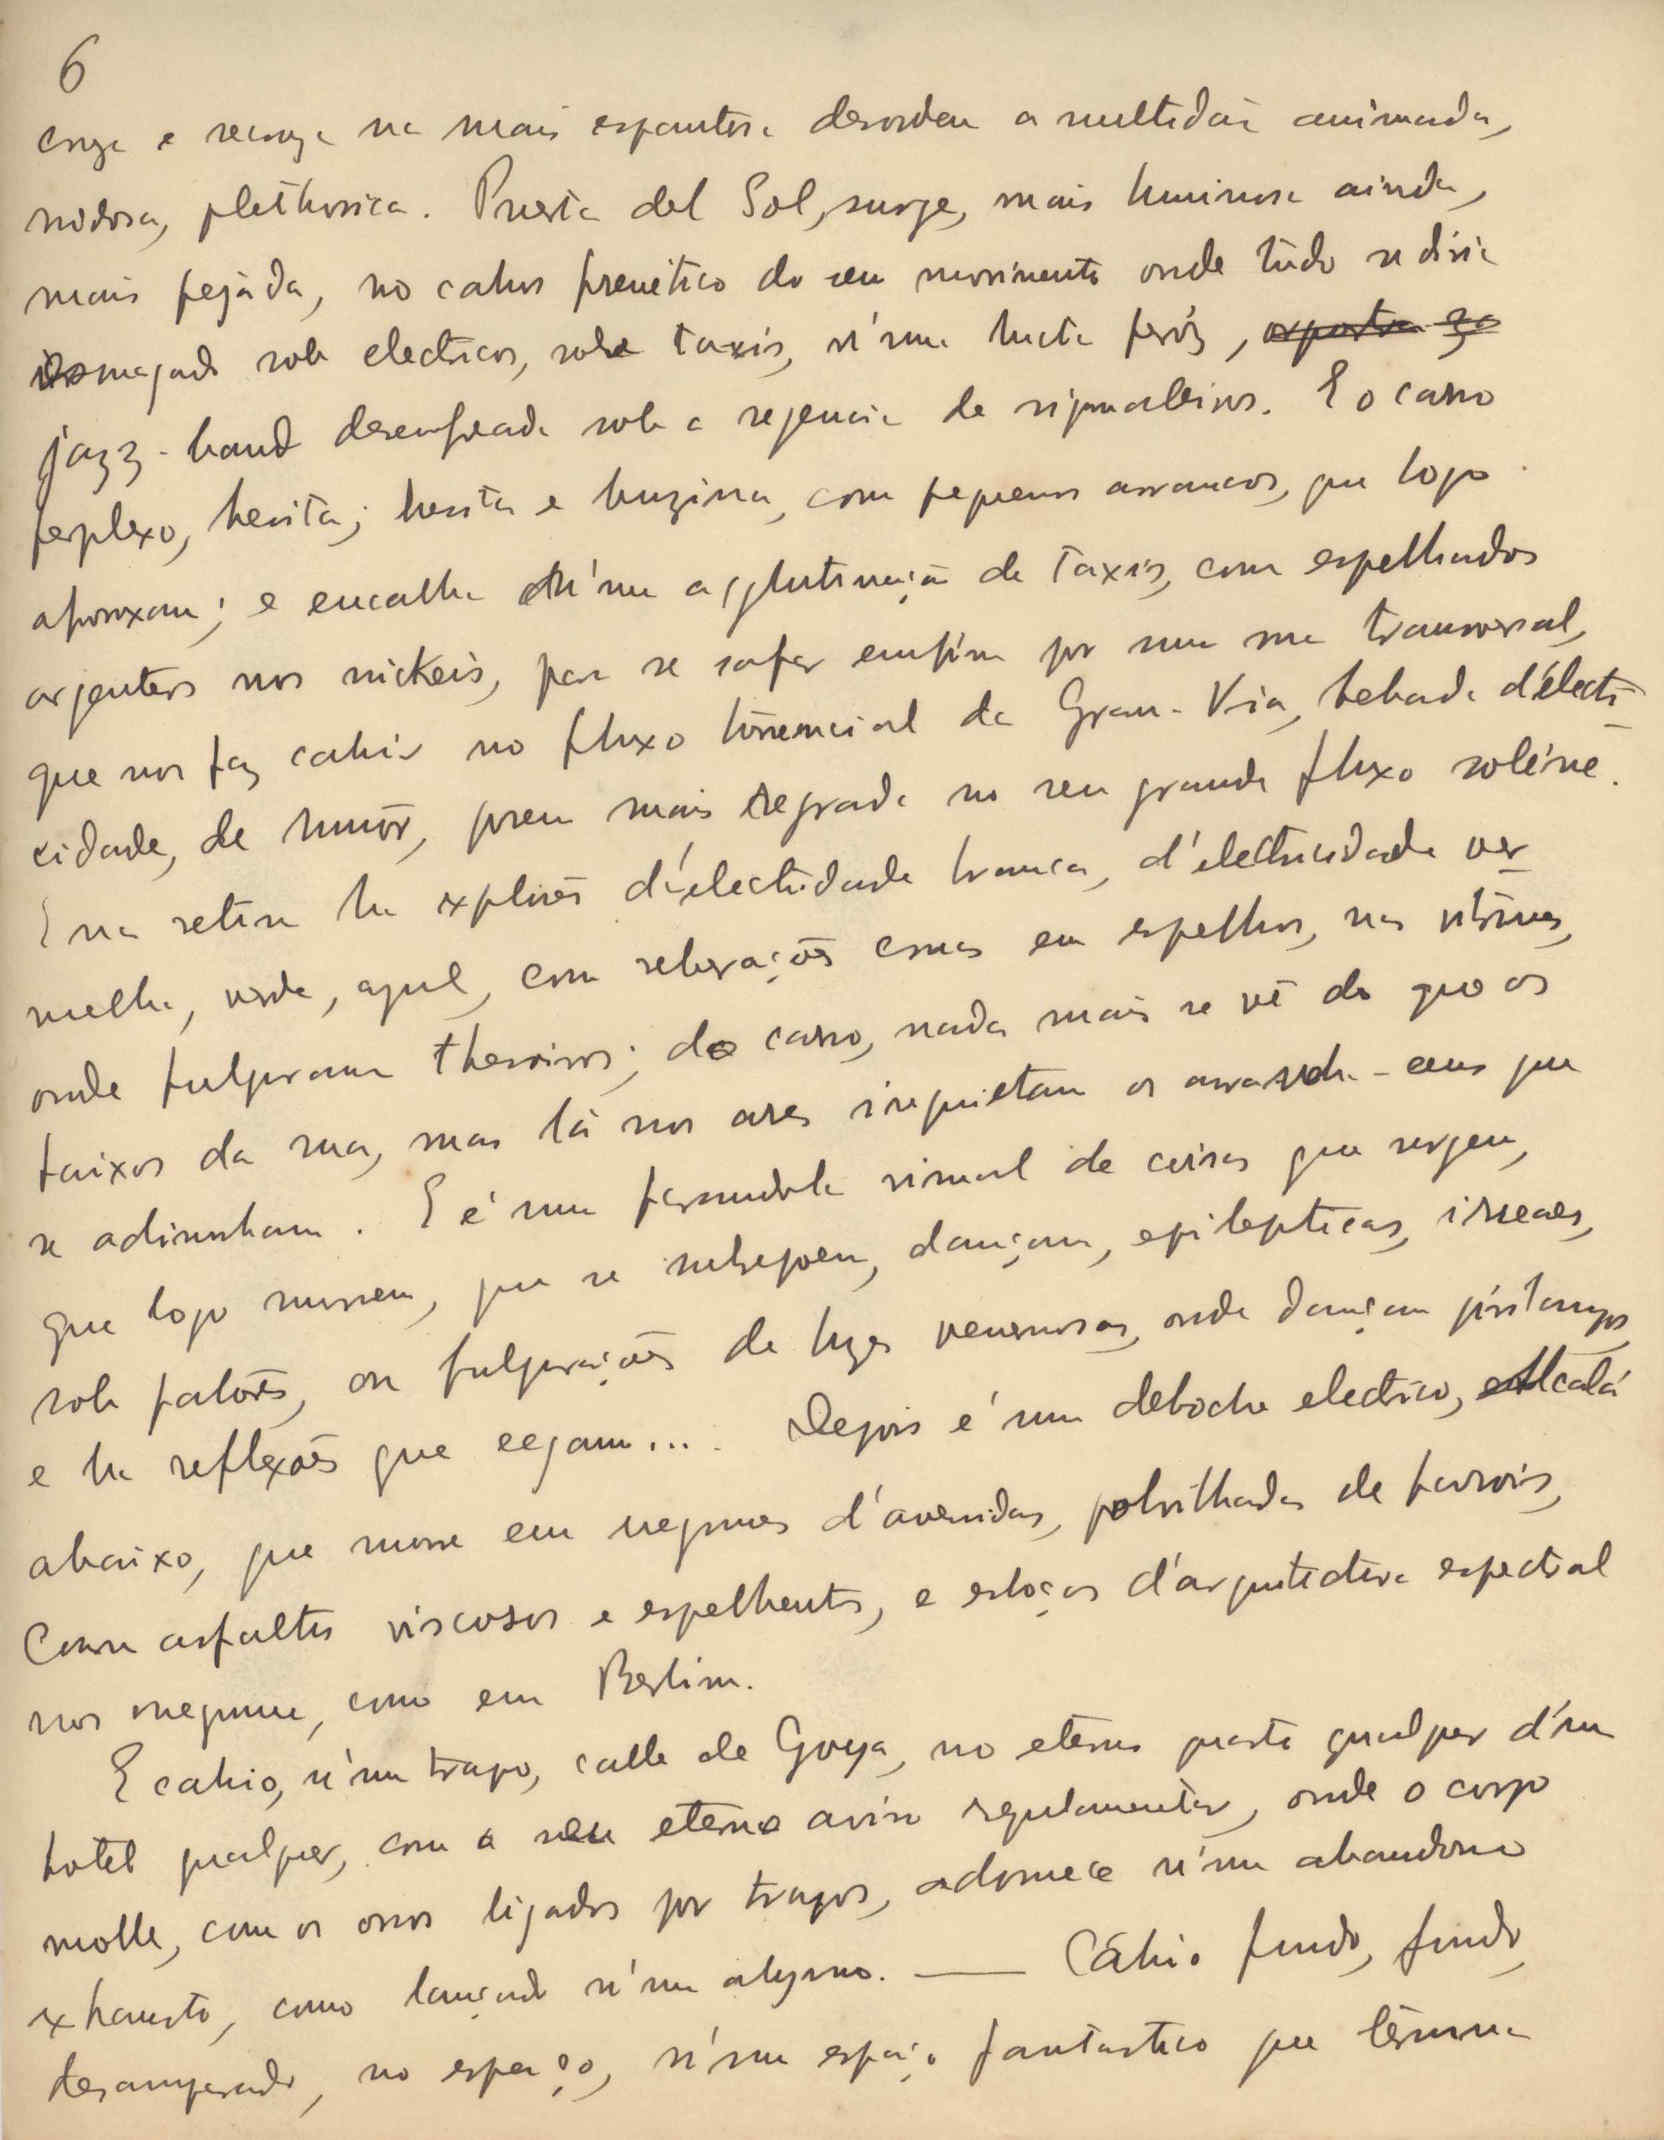 6
surge e resurge na mais espantosa desordem a multidão animada,
nodosa, plethorica. Puerta del Sol, surge, mais luminosa ainda,
mais pejáda, no cahos frenético do seu movimento onde tudo se diria
esmagado sob electricos, sobre taxis, n'uma lucta feróz,
jazz-band desenfreada sob a regencia de signaleiros. E o carro
perplexo, hesita; hesita e buzina, com pequenos arrancos, que logo
afrouxam; e encalha n'uma agglutinação de taxis, com espelhados
argenteos nos nickeis, para se safar emfim por uma rua transversal,
que nos faz cahir no fluxo torrencial da Gran-Via, bebada d'électri-
cidade, de rumôr, porem mais regrada no seu grande fluxo soléne.
E na retina ha explosões d'électricidade branca, d'electricidade ver-
melha, verde, azul, com reverações como em espelhos, nas vitrines,
onde fulguram thesoiros; do carro, nada mais se vê do que os
baixos da rua, mas lá nos ares inquietam os arranha-ceus que
se adivinham. E é uma farandola visual de coisas que surgem,
que logo morrem, que se sobrepoem, dançam, epilepticas, irreaes,
sob faróes, ou fulgurações de luzes venenosas, onde dançam pirilampos
e ha reflexões que cegam.... Depois é um deboche electrico, Alcalá
abaixo, que morre em negrumes d'avenidas, polvilhadas de farrois,
com asfaltos viscosos e espelhentos, e esboços d'arquitectura espectral
nos negrume, como em Berlim.
E cahio, n'um trapo, calle de Goya, no eterno quarto qualquer d'um
hotel qualquer, com o seu eterno aviso regulamentar, onde o corpo
molle, com os ossos ligados por trapos, adormece n'um abandono
exhausto, como lançado n'um abysmo. — Cáhio fundo, fundo,
desamparado, no espaço, n'um espaço fantastico que termina